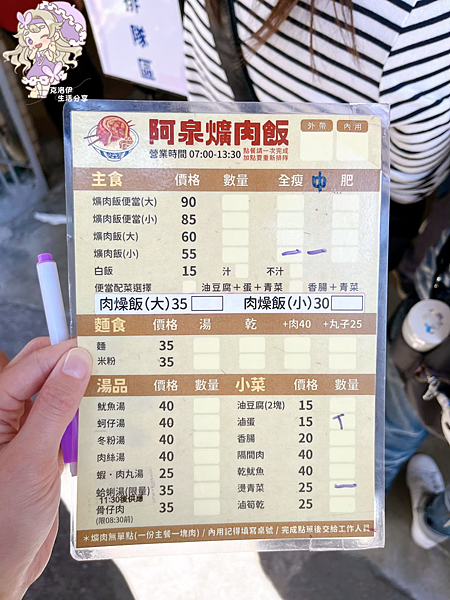 克洛伊
生活分享
排隊區
阿泉爌肉飯
外帶 內用
營業時間 07:00-13:30 點餐請一次完成 加點要重新排隊
主食 價格 數量 全瘦 中 肥
爌肉飯便當(大) 90
爌肉飯便當(小) 85
爌肉飯(大) 60
爌肉飯(小) 55
白飯 15 汁 不汁
便當配菜選擇 油豆腐+蛋+青菜 香腸+青菜
肉燥飯(大)35 肉燥飯(小)30
麵食 價格 湯 乾 +肉40 +丸子25
麵 35
米粉 35
湯品 價格 數量 小菜 價格 數量
魷魚湯 40 油豆腐(2塊) 15
蚵仔湯 40 滷蛋 15
冬粉湯 40 香腸 20
肉絲湯 40 隔間肉 40
蝦·肉丸湯 25 乾魷魚 40
蛤蜊湯(限量) 35 燙青菜 25
11:30後供應
骨仔肉 35 滷筍乾 25
(限08:30前)
*爌肉無單點(一份主餐一塊肉) / 內用記得填寫桌號 / 完成點單後交給工作人員